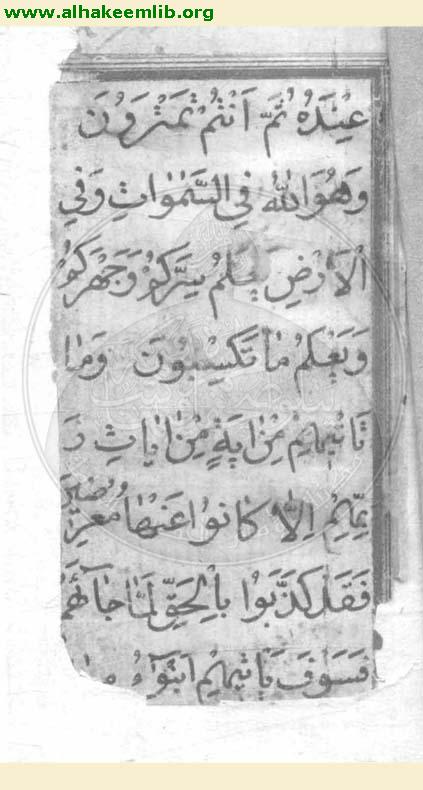 www.alhakeemlib.org
عِنْدَهُ ثُمَّ اَنْتُمْ تَمْتَرُونَ
وَهُوَ اللّٰهُ فِي السَّمٰوَاتِ وَفِي
الْاَرْضِ يَعْلَمُ سِرَّكُمْ وَجَهْرَكُمْ
وَيَعْلَمُ مَا تَكْسِبُونَ وَمَا
تَاْتِيهِمْ مِنْ اٰيَةٍ مِنْ اٰيَاتِ رَ
بِّهِمْ اِلَّا كَانُوا عَنْهَا مُعْرِضِينَ
فَقَدْ كَذَّبُوا بِالْحَقِّ لَمَّا جَآءَهُمْ
فَسَوْفَ يَاْتِيهِمْ اَنْبٰٓؤُ مَا